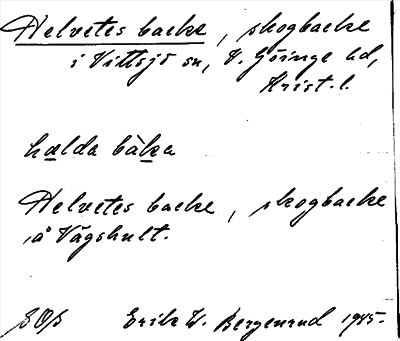 Helvetes backe, skogbacke
i Vittsjö sn, V. Göinge hd,
Krist. l.
hælda bàka
Helvetes backe, skogbacke
å Vägshult.
Erik W. Bergenrud 1945.